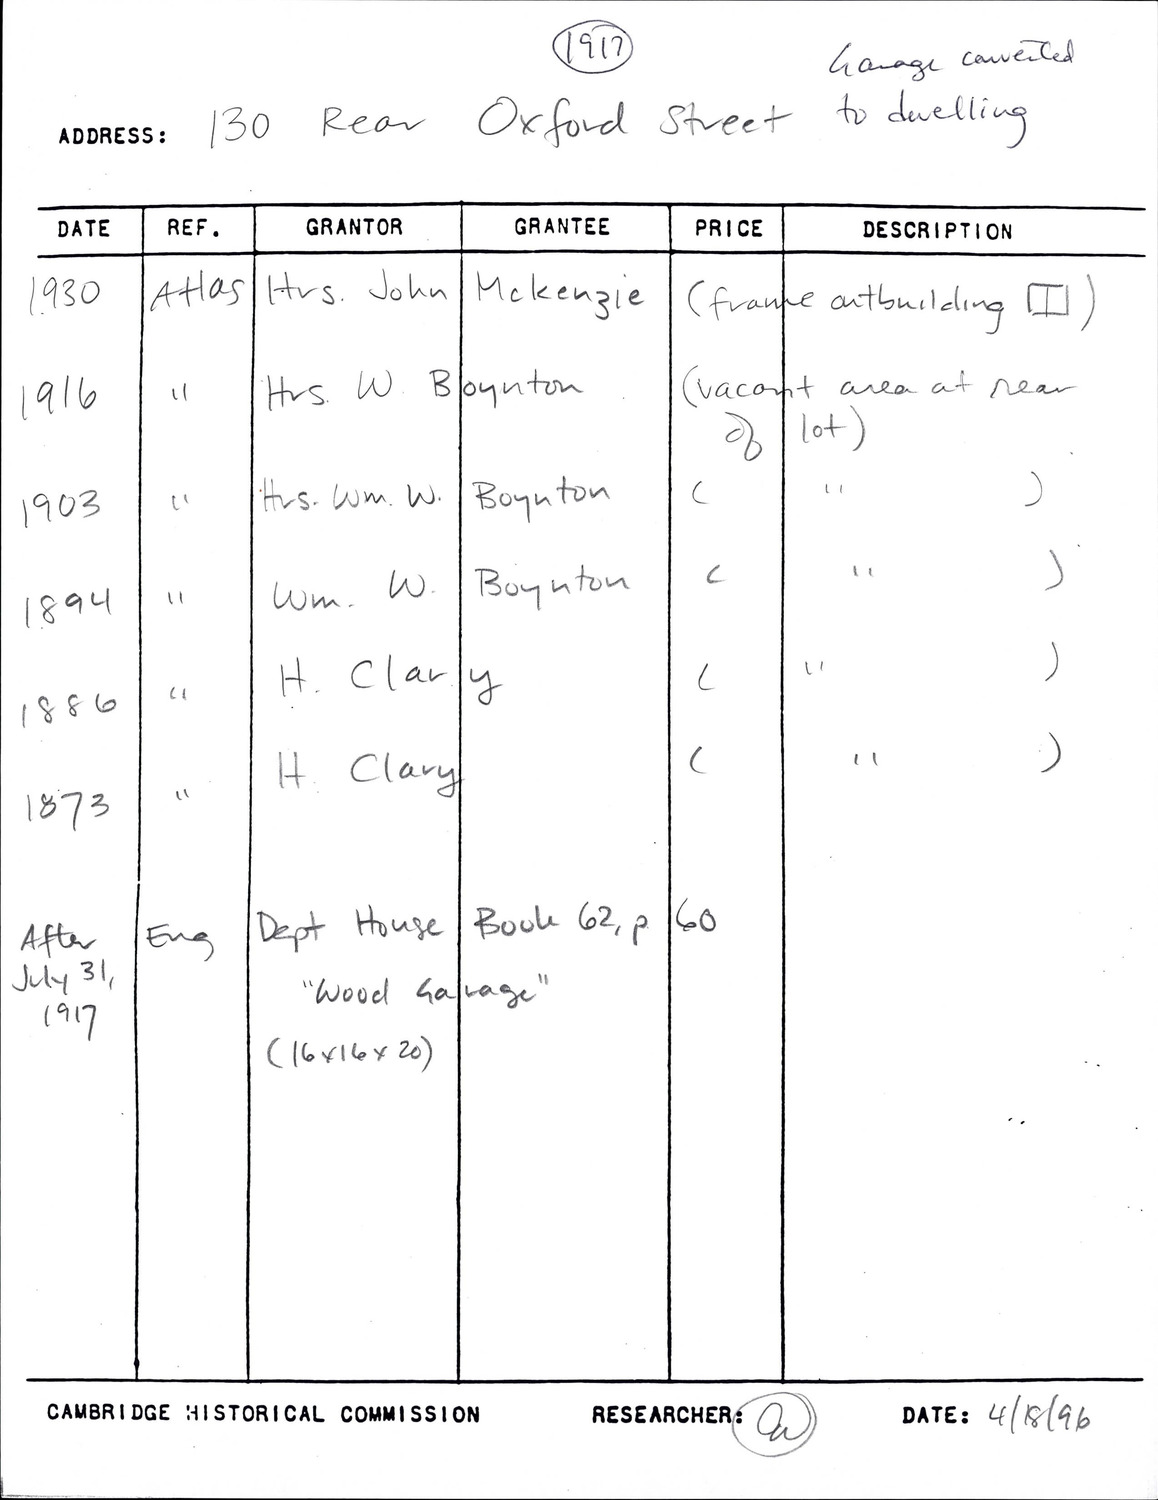 1917
Garage converted
to dwelling
ADDRESS: 130 Rear Oxford Street
DATE REF. GRANTOR GRANTEE PRICE DESCRIPTION
1930 Atlas Hrs. John Mckenzie (frame outbuilding )
1916 " Hrs. W. Boynton (vacant area at rear
of lot)
1903 " Hrs. Wm. W. Boynton ( " )
1894 " Wm. W. Boynton ( " )
1886 " H. Clary ( " )
1873 " H. Clary ( " )
After Eng Dept House Book 62, p 60
July 31,
1917
"Wood Garage"
(16x16x20)
CAMBRIDGE HISTORICAL COMMISSION RESEARCHER: DATE: 4/18/96